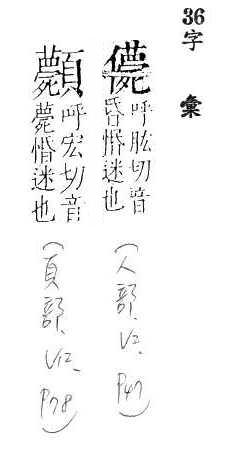 36字 彙
呼肱切音
昏惛迷也
(人部、V2、P47)
呼宏切音
薨惛迷也
(頁部、V12、P78)